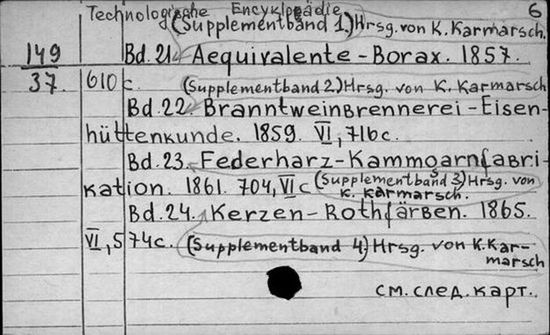 Technologische Encyklopädie 6
(Supplementband 1.) Hrsg. von K. Karmarsch.
149 Bd. 21 Aequivalente - Borax. 1857.
37. 610 c. (Supplementband 2) Hrsg. von K. Karmarsch
Bd. 22. Branntweinbrennerei - Eisen-
hüttenkunde. 1859. VI, 716 c.
Bd. 23. Federharz - Kammgarnfabri-
kation. 1861. 704, VI c (Supplementband 3) Hrsg. von
K. Karmarsch.
Bd. 24. Kerzen - Rothfärben. 1865.
VI, 574 c. (Supplementband 4) Hrsg. von K. Kar-
marsch
см. след. карт.